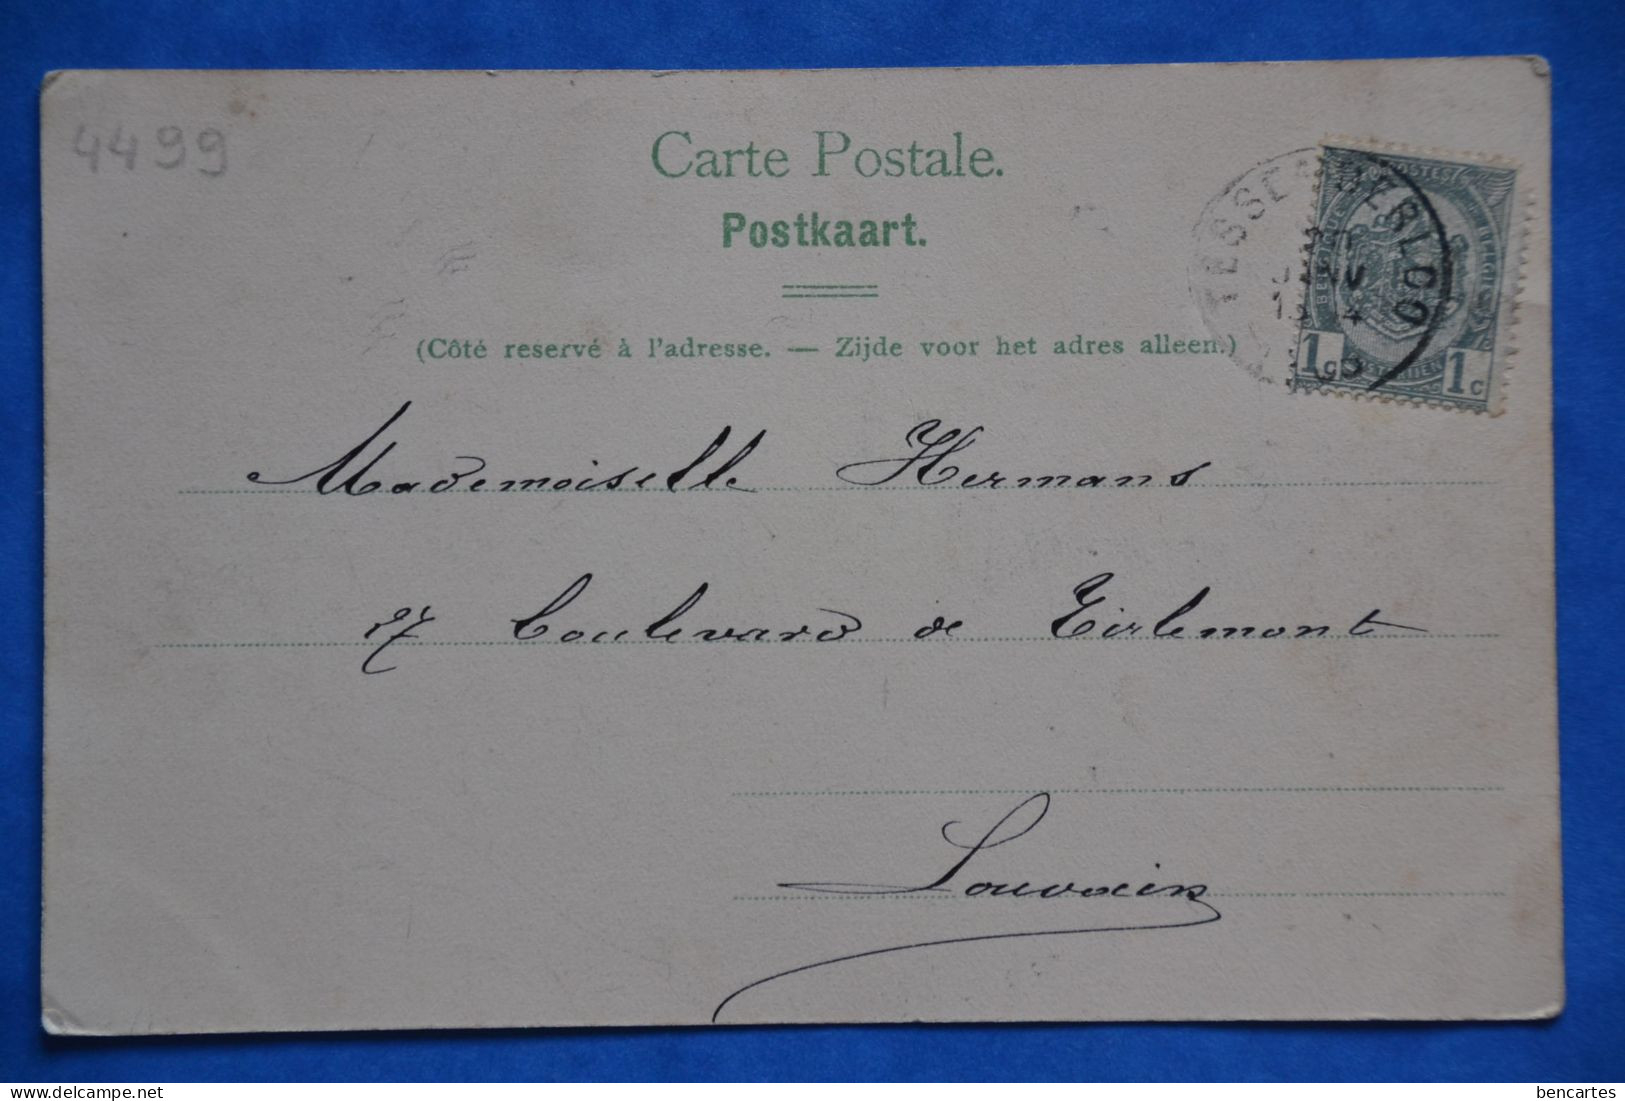 4499
Carte Postale.
Postkaart.
(Côté reservé à l'adresse. — Zijde voor het adres alleen.)
JANV
1c 1c
Mademoiselle Hermans
27 boulevard de Tirlemont
Louvain
delcampe.net
bencartes